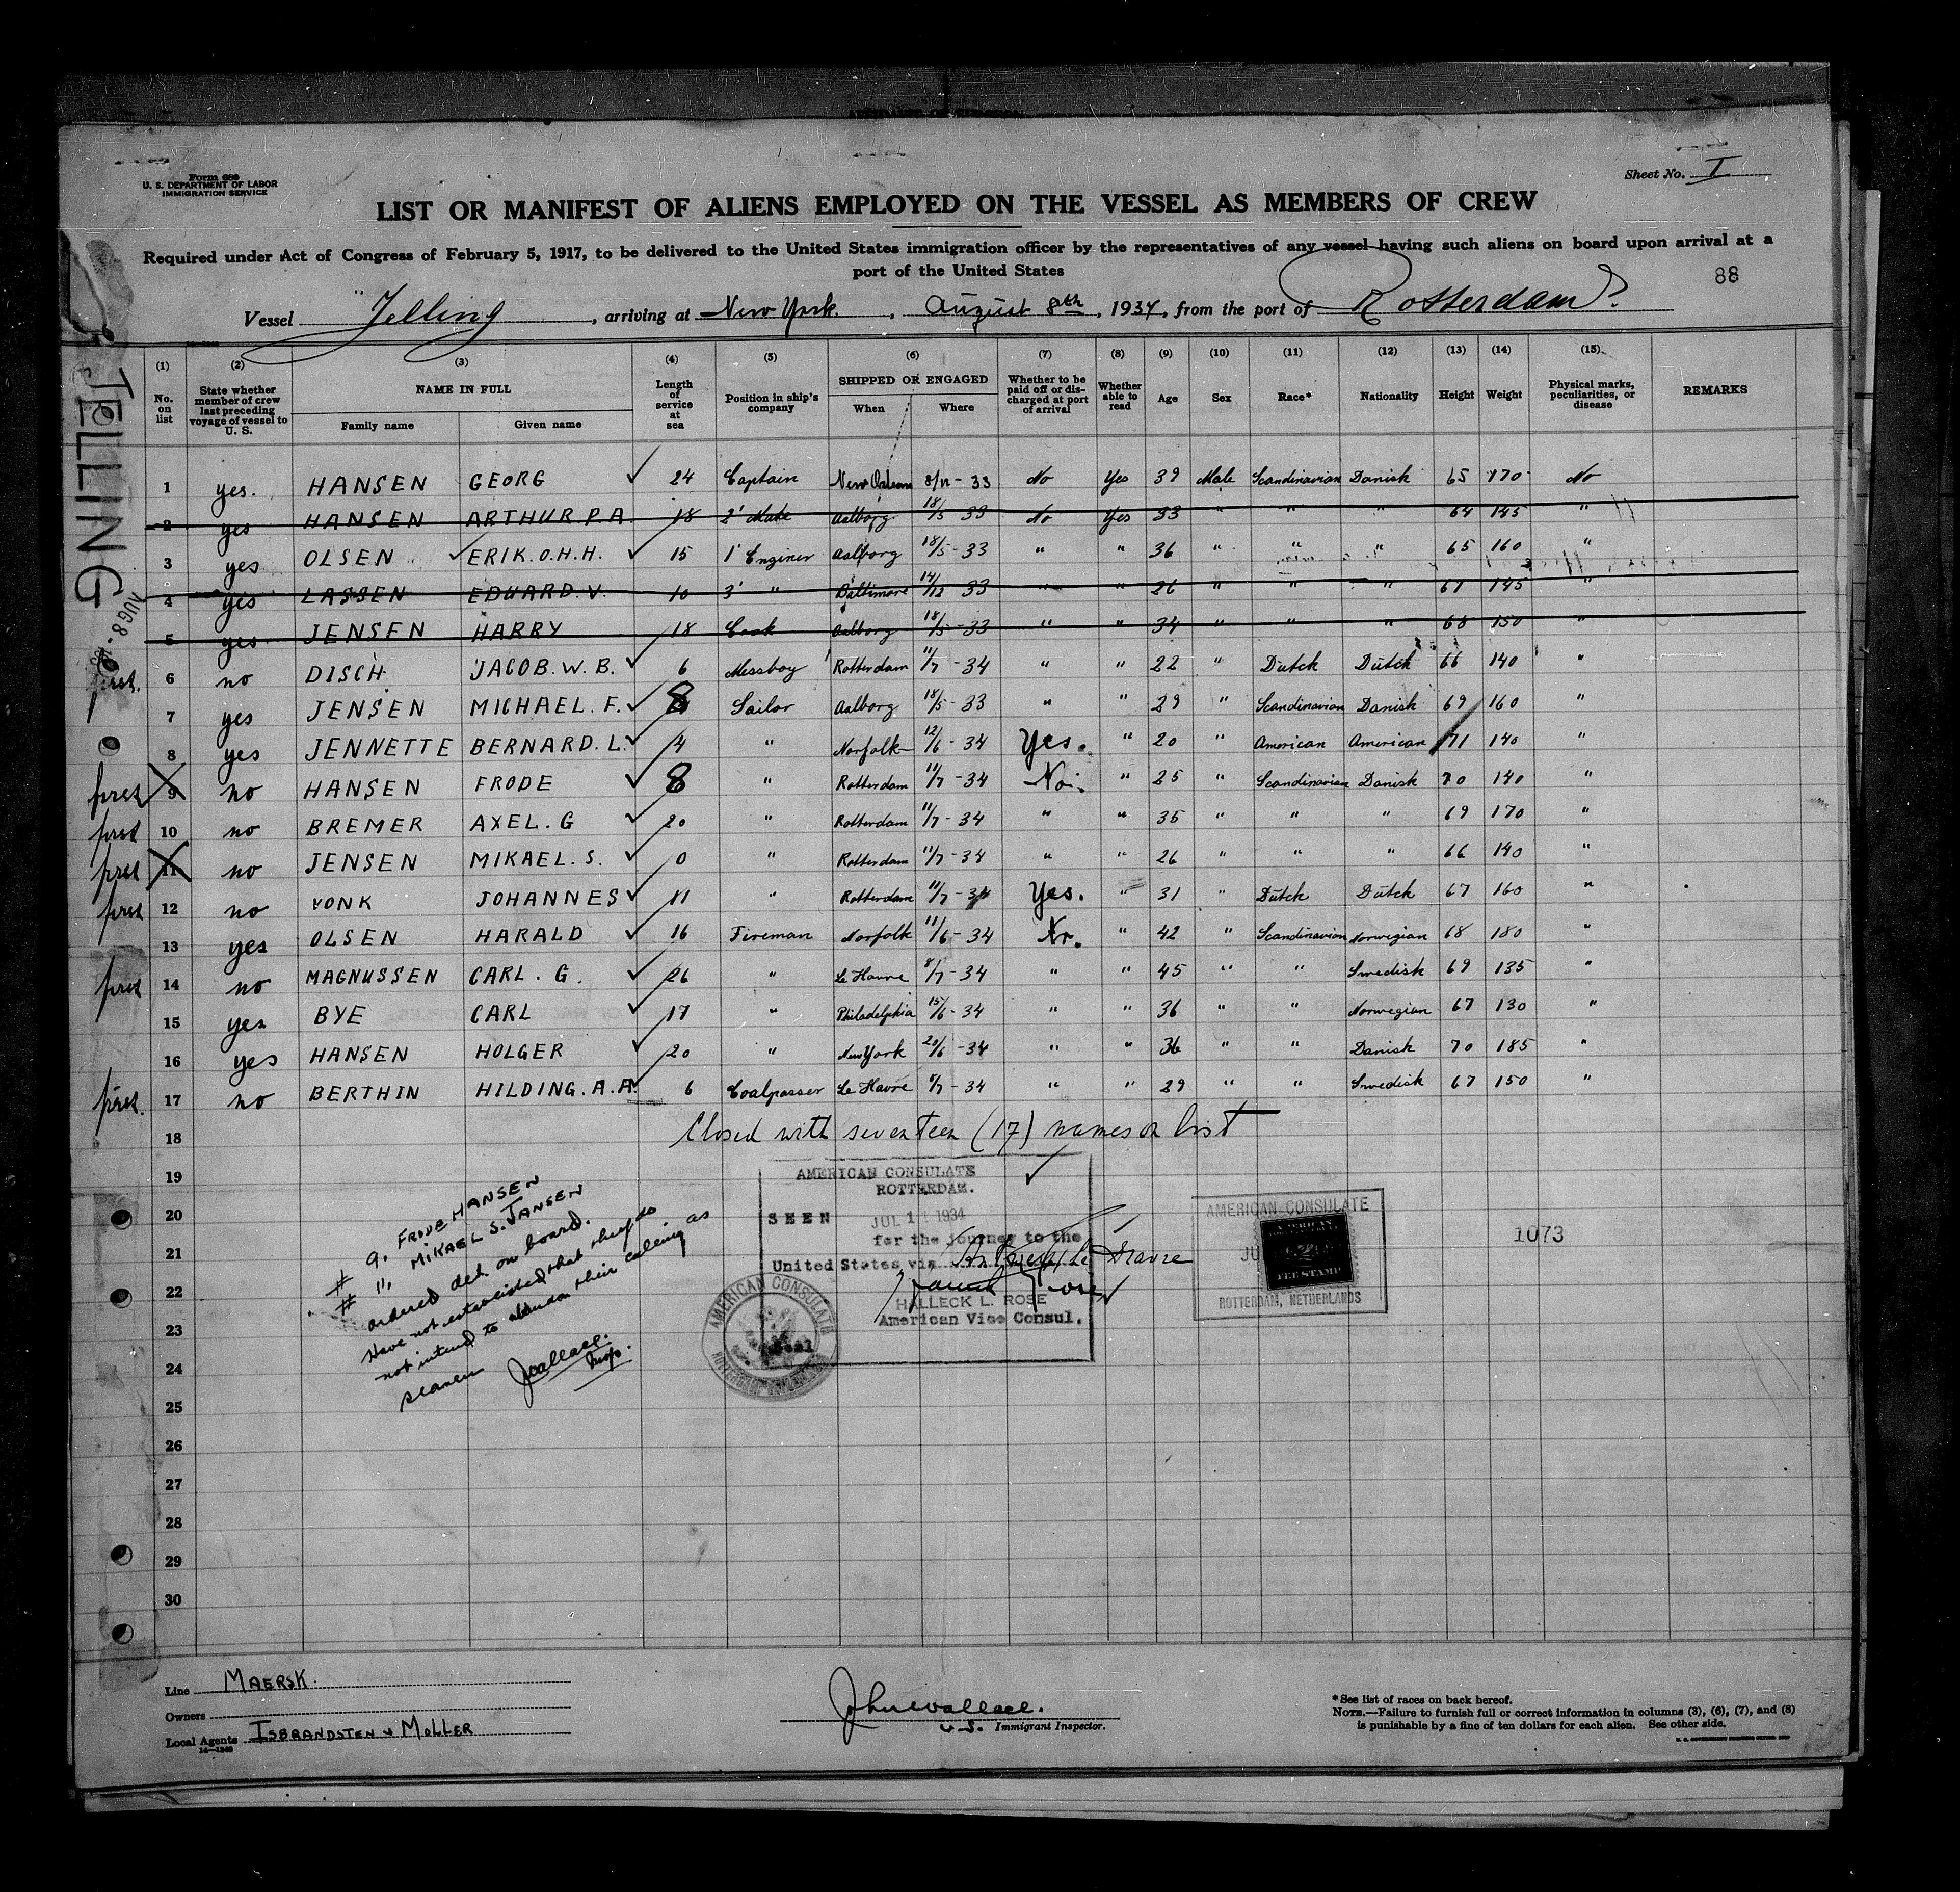 Form 680
U. S. DEPARTMENT OF LABOR
IMMIGRATION SERVICE
Sheet No. I
LIST OR MANIFEST OF ALIENS EMPLOYED ON THE VESSEL AS MEMBERS OF CREW
Required under Act of Congress of February 5, 1917, to be delivered to the United States immigration officer by the representatives of any vessel having such aliens on board upon arrival at a
port of the United States
88
Vessel "Jelling, arriving at New York., August 8th, 1934, from the port of Rotterdam
JELLING
AUG 8
(1) (2) (3) (4) (5) (6) (7) (8) (9) (10) (11) (12) (13) (14) (15)
No. on list
State whether member of crew last preceding voyage of vessel to U. S.
NAME IN FULL
Family name Given name
Length of service at sea
Position in ship's company
SHIPPED OR ENGAGED
When Where
Whether to be paid off or discharged at port of arrival
Whether able to read
Age Sex Race* Nationality Height Weight
Physical marks, peculiarities, or disease
REMARKS
1 yes. HANSEN GEORG 24 Captain New Orleans 8/11-33 No Yes 39 Male Scandinavian Danish 65 170 No
2 yes HANSEN ARTHUR P.A. 18 2' Mate Aalborg 18/5-33 No Yes 33 " " " 64 145 "
3 yes OLSEN ERIK.O.H.H. 15 1' Enginer Aalborg 18/5-33 " " 36 " " " 65 160 "
4 yes LASSEN EDUARD.V. 10 3' " Baltimore 14/12 33 " " 26 " " " 67 145 "
5 yes JENSEN HARRY 18 Cook Aalborg 18/5-33 " " 34 " " " 68 150 "
first. 6 no DISCH JACOB.W.B. 6 Messboy Rotterdam 11/7-34 " " 22 " Dutch Dutch 66 140 "
7 yes JENSEN MICHAEL.F. 8 Sailor Aalborg 18/5-33 " " 29 " Scandinavian Danish 69 160 "
8 yes JENNETTE BERNARD.L. 4 " Norfolk 12/6-34 Yes. " 20 " American American 71 140 "
first 9 no HANSEN FRODE 8 " Rotterdam 11/7-34 No. " 25 " Scandinavian Danish 70 140 "
first 10 no BREMER AXEL.G 20 " Rotterdam 11/7-34 " " 35 " " " 69 170 "
first 11 no JENSEN MIKAEL.S. 0 " Rotterdam 11/7-34 " " 26 " " " 66 140 "
first 12 no VONK JOHANNES 11 " Rotterdam 11/7-34 Yes. " 31 " Dutch Dutch 67 160 "
13 yes OLSEN HARALD 16 Fireman Norfolk 11/6-34 No. " 42 " Scandinavian Norwegian 68 180 "
first 14 no MAGNUSSEN CARL.G. 26 " Le Havre 8/7-34 " " 45 " " Swedish 69 135 "
15 yes BYE CARL 17 " Philadelphia 15/6-34 " " 36 " " Norwegian 67 130 "
16 yes HANSEN HOLGER 20 " New York 20/6-34 " " 36 " " Danish 70 185 "
first. 17 no BERTHIN HILDING.A.A. 6 Coalpasser Le Havre 8/7-34 " " 29 " " Swedish 67 150 "
18 Closed with seventeen (17) names on list
19
20
21
22
23
24
25
26
27
28
29
30
# 9. FRODE HANSEN
# 11, MIKAEL S. JANSEN
ordered det. on board.
Have not established that they do
not intend to abandon their calling as
seamen
JWallace.
Insp.
AMERICAN CONSULATE
ROTTERDAM.
SEEN JUL 11 1934
for the journey to the
United States via Antwerp, Le Havre
HALLECK L. ROSE
American Vice Consul.
AMERICAN CONSULATE
Seal
AMERICAN CONSULATE
AMERICAN
FEE STAMP
ROTTERDAM, NETHERLANDS
1073
Line MAERSK.
Owners
Local Agents ISBRANDSTEN & MOLLER
14-1240
John Wallace.
U.S. Immigrant Inspector.
*See list of races on back hereof.
NOTE.—Failure to furnish full or correct information in columns (3), (6), (7), and (8)
is punishable by a fine of ten dollars for each alien. See other side.